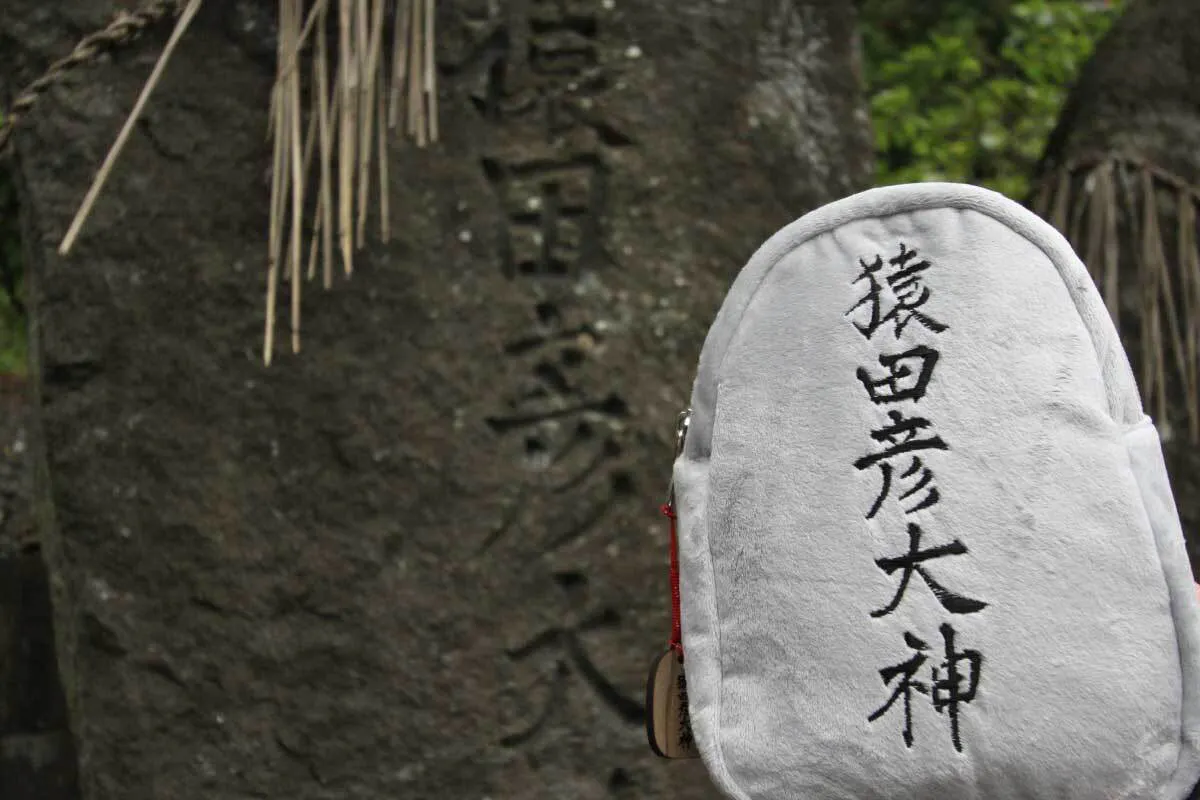 猿田彦大
猿田彦大神
猿田彦大神